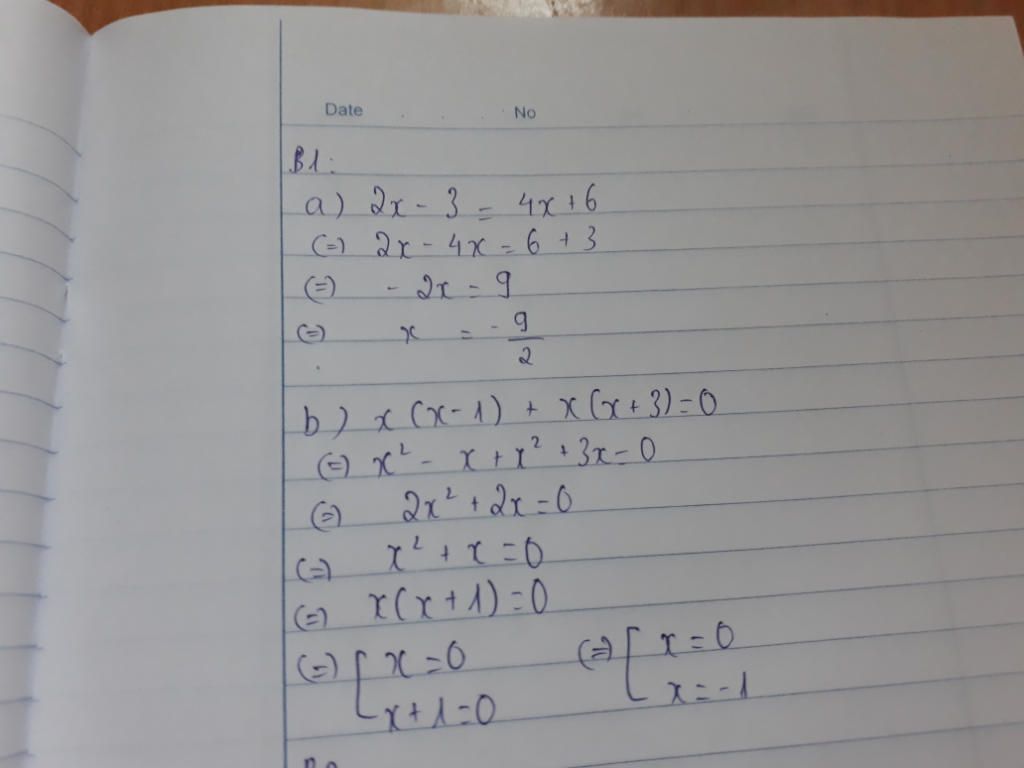 Date No
B1:
a) 2x - 3 = 4x + 6
(=) 2x - 4x = 6 + 3
(=) - 2x = 9
(=) x = - 9/2
b) x (x - 1) + x (x + 3) = 0
(=) x² - x + x² + 3x = 0
(=) 2x² + 2x = 0
(=) x² + x = 0
(=) x(x + 1) = 0
(=) [ x = 0 (=) [ x = 0
x + 1 = 0 x = -1